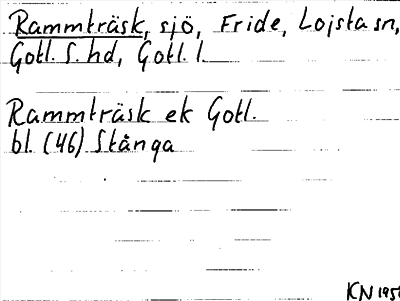 Rammträsk, sjö, Fride, Lojsta sn,
Gotl. S. hd, Gotl. l.
Rammträsk ek Gotl.
bl. (46) Stånga
KN